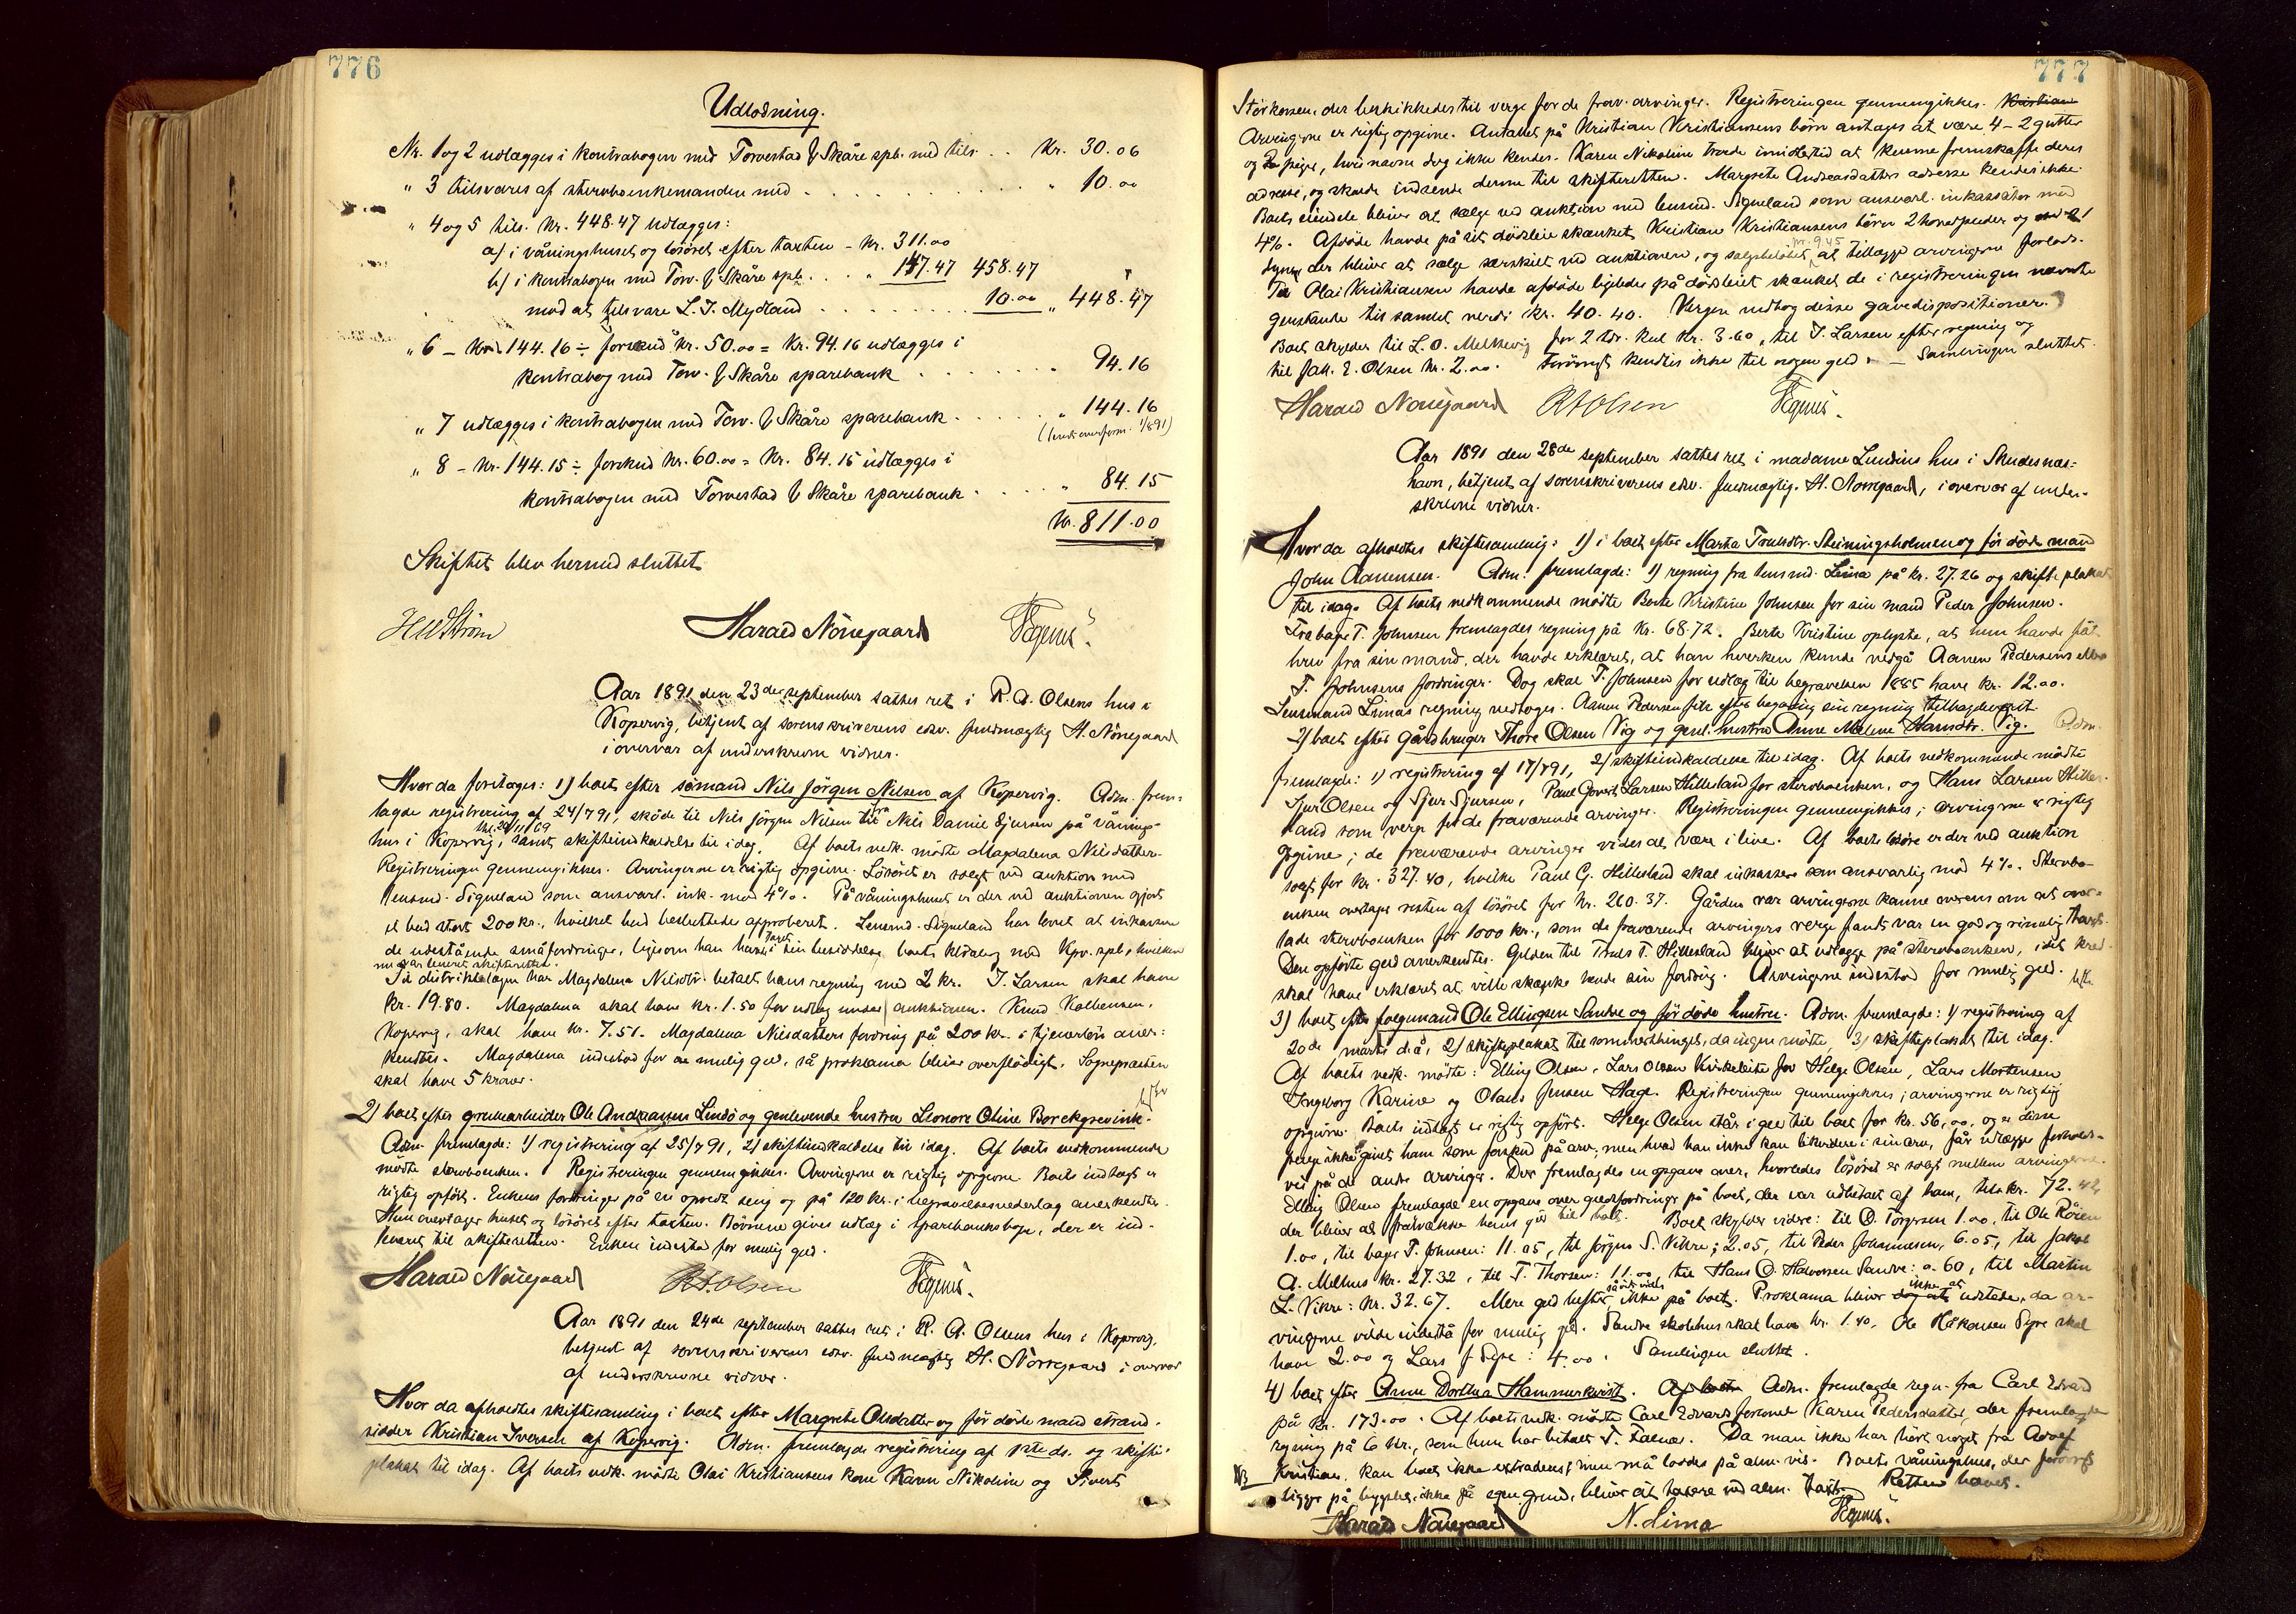 776
Udlodning.
Nr. 1 og 2 udlægges i kontrabogen med Torvestad & Skåre spb. med tils. . . Kr. 30.06
" 3 tilsvares af stervboenkemanden med . . . . " 10.00
" 4 og 5 tils. kr. 448.47 udlægges:
a) i våningshuset og løsöret efter taxten - kr. 311.00
b) i kontrabogen med Torv. & Skåre spb. . . . " 147.47 458.47
mod at tilsvare L. J. Mydland . . . . 10.00 " 448.47
" 6 - Kr. 144.16 ÷ forskud kr. 50.00 = kr. 94.16 udlægges i
kontrabog med Torv. & Skåre sparebank . . . . " 94.16
" 7 udlægges i kontrabogen med Torv. & Skåre sparebank . . . . " 144.16
" 8 - kr. 144.15 ÷ forskud kr. 60.00 = kr. 84.15 udlægges i
kontrabogen med Torvestad & Skåre sparebank . . . . " 84.15
Kr. 811.00
Skiftet blev hermed sluttet
Harald Nörregaard
Aar 1891 den 23de september sattes ret i R. A. Olsens hus i
Kopervig, betjent af sorenskriverens edsv. fuldmægtig H. Nörregaard
i overvær af underskrevne vidner.
Hvorda foretoges: 1) boet efter sömand Nils Jörgen Nilsen af Kopervig. Adm. frem-
lagde registrering af 24/7 91, sköde til Nils Jörgen Nilsen fra Nils Daniel Sjursen på vånings-
hus i Kopervig, samt skifteindkaldelse til idag. Af boets vedk. mödte Magdalena Nilsdatter.
Registreringen gennemgikkes. Arvingerne er rigtig opgivne. Lösöret er solgt ved auktion med
lensmd. Signeland som ansvarl. ink. mod 4%. På våningshuset er der ved auktionen gjort
et bud stort 200 kr., hvilket bud besluttedes approberet. Lensmd. Signeland har lovet at inkassere
de udestående småfordringer, ligesom han har taget i sin besiddelse boets kldalog med Kpv. spb., hvilken
nu var leveret skifteretten.
Til distriktslægen har Magdalena Nilsdtr. betalt hans regning med 2 kr. J. Larsen skal have
kr. 19.80. Magdalena skal have kr. 1.50 for udlæg under auktionen. Knud Kolbensen,
Kopervig, skal have kr. 7.51. Magdalena Nilsdatters fordring på 200 kr. i tjenerlön aner-
kendtes. Magdalena indestod for al mulig gæld, så proklama bliver overflödigt. Sognepresten
skal have 5 kroner.
2) boet efter grubearbeider Ole Andreassen Lindö og genlevende hustru Leonore Oline Borchgrevink.
Adm. fremlagde: 1) registrering af 25/7 91, 2) skifteindkaldelse til idag. Af boets vedkommende
mödte stervboenken. Registreringen gennemgikkes. Arvingerne er rigtig opgivne. Boets indtægt er
rigtig opfört. Enkens fordringer på en opredt seng og på 120 kr. i begravelsesvederlag anerkendtes.
Hun overtager huset og lösöret efter taxten. Börnene gives udlæg i sparebanksbogen, der er ind-
leveret til skifteretten. Enken indestod for mulig gæld.
Harald Nörregaard R. A. Olsen
Aar 1891 den 24de september sattes ret i R. A. Olsens hus i Kopervig,
betjent af sorenskriverens edsv. fuldmægtig H. Nörregaard i overvær
af underskrevne vidner.
Hvorda afholdtes skiftesamling i boet efter Margrethe Olsdatter og för döde mand strand-
sidder Kristian Iversen af Kopervig. Adm. fremlagde registrering af 1ste ds. og skifte-
plakat til idag. Af boets vedk. mödte Olai Kristiansens kone Karen Nikoline og Sivert
777
Störkersen, der beskikkedes til verge for de frav. arvinger. Registreringen gennemgikkes. Kristian
Arvingerne er rigtig opgivne. Antallet på Kristian Kristiansens börn antages at være 4 - 2 gutter
og 2 piger, hvis navne dog ikke kendes. Karen Nikoline troede imidlertid at kunne fremskaffe deres
adresse, og skulde indsende denne til skifteretten. Margrete Andreasdatters adresse kendes ikke.
Boets eiendele bliver at sælge ved auktion med lensmd. Signeland som ansvarl. inkassator mod
4%. Afdöde havde på sit dödsleie skænket Kristian Kristiansens börn 2 hovedpuder og
dyne, der bliver at sælge særskilt ved auktionen, og salgsbelöbet at tillægge arvingerne forlods.
Til Olai Kristiansen havde afdöde ligeledes på dödsleiet skænket de i registreringen nævnte
genstande til samlet værdi kr. 40.40. Vergen vedtog disse gavedispositioner.
Boet skylder til L. O. Melkevig for 2 tdr. kul kr. 3.60, til J. Larsen efter regning og
til Joh. E. Olsen kr. 2.00. Forövrigt kendtes ikke til nogen gæld. - Samlingen sluttet.
Harald Nörregaard R A Olsen
Aar 1891 den 28de september sattes ret i madame Lundins hus i Skudesnæs-
havn, betjent af sorenskriverens edsv. fuldmægtig H. Nörregaard, i overvær af under-
skrevne vidner.
Hvorda afholdtes skiftesamling: 1) i boet efter Marta Trulsdtr. Steiningsholmen og för döde mand
John Aanensen. Adm. fremlagde: 1) regning fra lensmd. Lima på kr. 27.26 og skifteplakat
til idag. Af boets vedkommende mödte Berte Kristine Johnsen for sin mand Peder Johnsen.
Fra bager T. Johnsen fremlagdes regning på kr. 68.72. Berte Kristine oplyste, at hun havde fåt
brev fra sin mand, der havde erklæret, at han hverken kunde vedgå Aanen Pedersens eller
T. Johnsens fordringer. Dog skal T. Johnsen for udlæg til begravelsen 1885 have kr. 12.00.
Lensmand Limas regning vedtoges. Aanen Pedersen fik efter begæring sin regning tilbageleveret.
2) boet efter gårdbruger Thore Olsen Vig og genl. hustru Anne Malene Hansdtr. Vig. Adm.
fremlagde: 1) registrering af 17/7 91, 2) skifteindkaldelse til idag. Af boets vedkommende mödte
Sjur Olsen og Sjur Sjursen, Paul Govert Larsen Hillesland for stervboenken, og Hans Larsen Hilles-
land som verge for de fraværende arvinger. Registreringen gennemgikkes; arvingerne er rigtig
opgivne; de fraværende arvinger vides at være i live. Af boets lösöre er der ved auktion
solgt for kr. 327.40, hvilke Paul G. Hillesland skal inkassere som ansvarlig mod 4%. Stervbo-
enken overtager resten af lösöret for kr. 260.37. Gården var arvingerne komne overens om at over-
lade stervboenken for 1000 kr., som de fraværende arvingers verge fandt var en god og rimelig taxt.
Den opförte gæld anerkendtes. Gælden til Truls T. Hillesland bliver at udlægge på stervboenken, idet kred.
skal have erklæret at ville skænke hende sin fordring. Arvingerne indestod for mulig gæld.
3) boet efter folgemand Ole Ellingsen Sandve og för döde hustru. Adm. fremlagde: 1) registrering af
20de marts d.å., 2) skifteplakat til sommerthinget, da ingen mötte, 3) skifteplakat til idag.
Af boets vedk. mötte: Elling Olsen, Lars Olsen Kirkeleite for Helge Olsen, Lars Mortensen
Ingeborg Karine og Olaus Jensen Hage. Registreringen gennemgikkes; arvingerne er rigtig
opgivne. Boets indtægt er rigtig opfört. Helge Olsen står i gæld til boet for kr. 56.00, og er disse
penge ikke givet ham som forskud på arv, men hvad han ikke kan likvidere i sin arv, får udlægges forholds-
vis på de andre arvinger. Der fremlagdes en opgave over, hvorledes lösöret er solgt mellem arvingerne.
Elling Olsen fremlagde en opgave over gældsfordringer på boet, der var udbetalt af ham, tils. kr. 72.42,
der bliver at fratrække hans gæld til boet. Boet skylder videre: til O. Torgersen 1.00, til Ole Röien
1.00, til bager T. Johnsen: 11.05, til Jörgen S. Vikre: 2.05, til Peder Johannesen, 6.05, til Jakob
A. Melhus kr. 27.32, til T. Thorsen: 11.00, til Hans O. Halvorsen Sandve: 0.60, til Martin
L. Vikre: kr. 32.67. Mere gæld hefter såvidt vides ikke på boet. Proklama bliver dog at ikke at udstede, da ar-
vingerne vilde indestå for mulig gæld. Sandve skolehus skal have kr. 1.40, Ole Håkonsen Syre skal
have 2.00 og Lars J. Syre: 4.00. Samlingen sluttet.
4) boet efter Anne Dorthea Hammerkvist. Af boets Adm. fremlagde regn. fra Carl Edvard
på kr. 173.00. Af boets vedk. mötte Carl Edvard personel Karen Pedersdatter, der fremlagde
regning på 6 kr., som hun har betalt T. Falnes. Da man ikke har hört noget fra Adolf
Kristian, kan boet ikke extraderes, men må loddes på alm. vis. Boets våningshus, der forövrigt
NB
ligger på bygslet, ikke på egen grund, bliver at taxere ved alm. taxt. Retten hævet.
Harald Nörregaard N. Lima